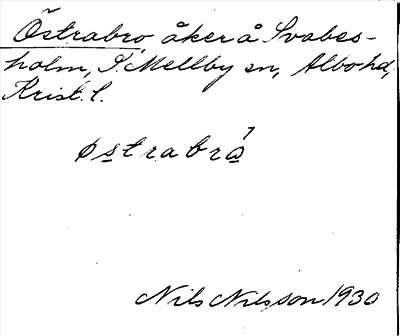 Östrabro, åker å Svabes-
holm, S. Mellby sn, Albo hd,
Krist. l.
østrabrɷ́
Nils Nilsson 1930